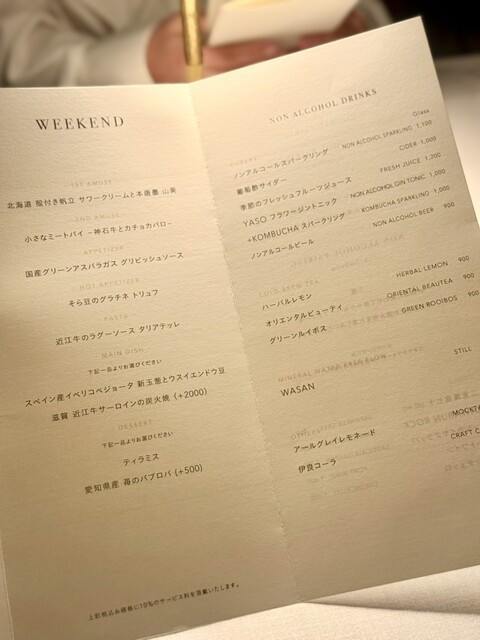 WEEKEND
1ST AMUSE
北海道 殻付き帆立 サワークリームと本山葵
2ND AMUSE
小さなミートパイ －神石牛とカチョカバロ－
APPETIZER
国産グリーンアスパラガス グリビッシュソース
HOT APPETIZER
そら豆のグラチネ トリュフ
PASTA
近江牛のラグーソース タリアテッレ
MAIN DISH
下記一品よりお選びください
スペイン産イベリコベジョータ 新玉葱とウスイエンドウ豆
滋賀 近江牛サーロインの炭火焼 (+2000)
DESSERT
下記一品よりお選びください
ティラミス
愛知県産 苺のパブロバ (+500)
上記税込み価格に10%のサービス料を頂戴いたします。
NON ALCOHOL DRINKS
Glass
ノンアルコールスパークリング NON ALCOHOL SPARKLING 1,100
葡萄酢サイダー CIDER 1,000
季節のフレッシュフルーツジュース FRESH JUICE 1,200
YASO フラワージントニック NON ALCOHOL GIN TONIC 1,000
+KOMBUCHA スパークリング KOMBUCHA SPARKLING 1,000
ノンアルコールビール NON ALCOHOL BEER 900
COLD BREW TEA
ハーバルレモン HERBAL LEMON 900
オリエンタルビューティ ORIENTAL BEAUTEA 900
グリーンルイボス GREEN ROOIBOS 900
MINERAL WATER
WASAN STILL
アールグレイレモネード MOCKTA
伊良コーラ CRAFT C